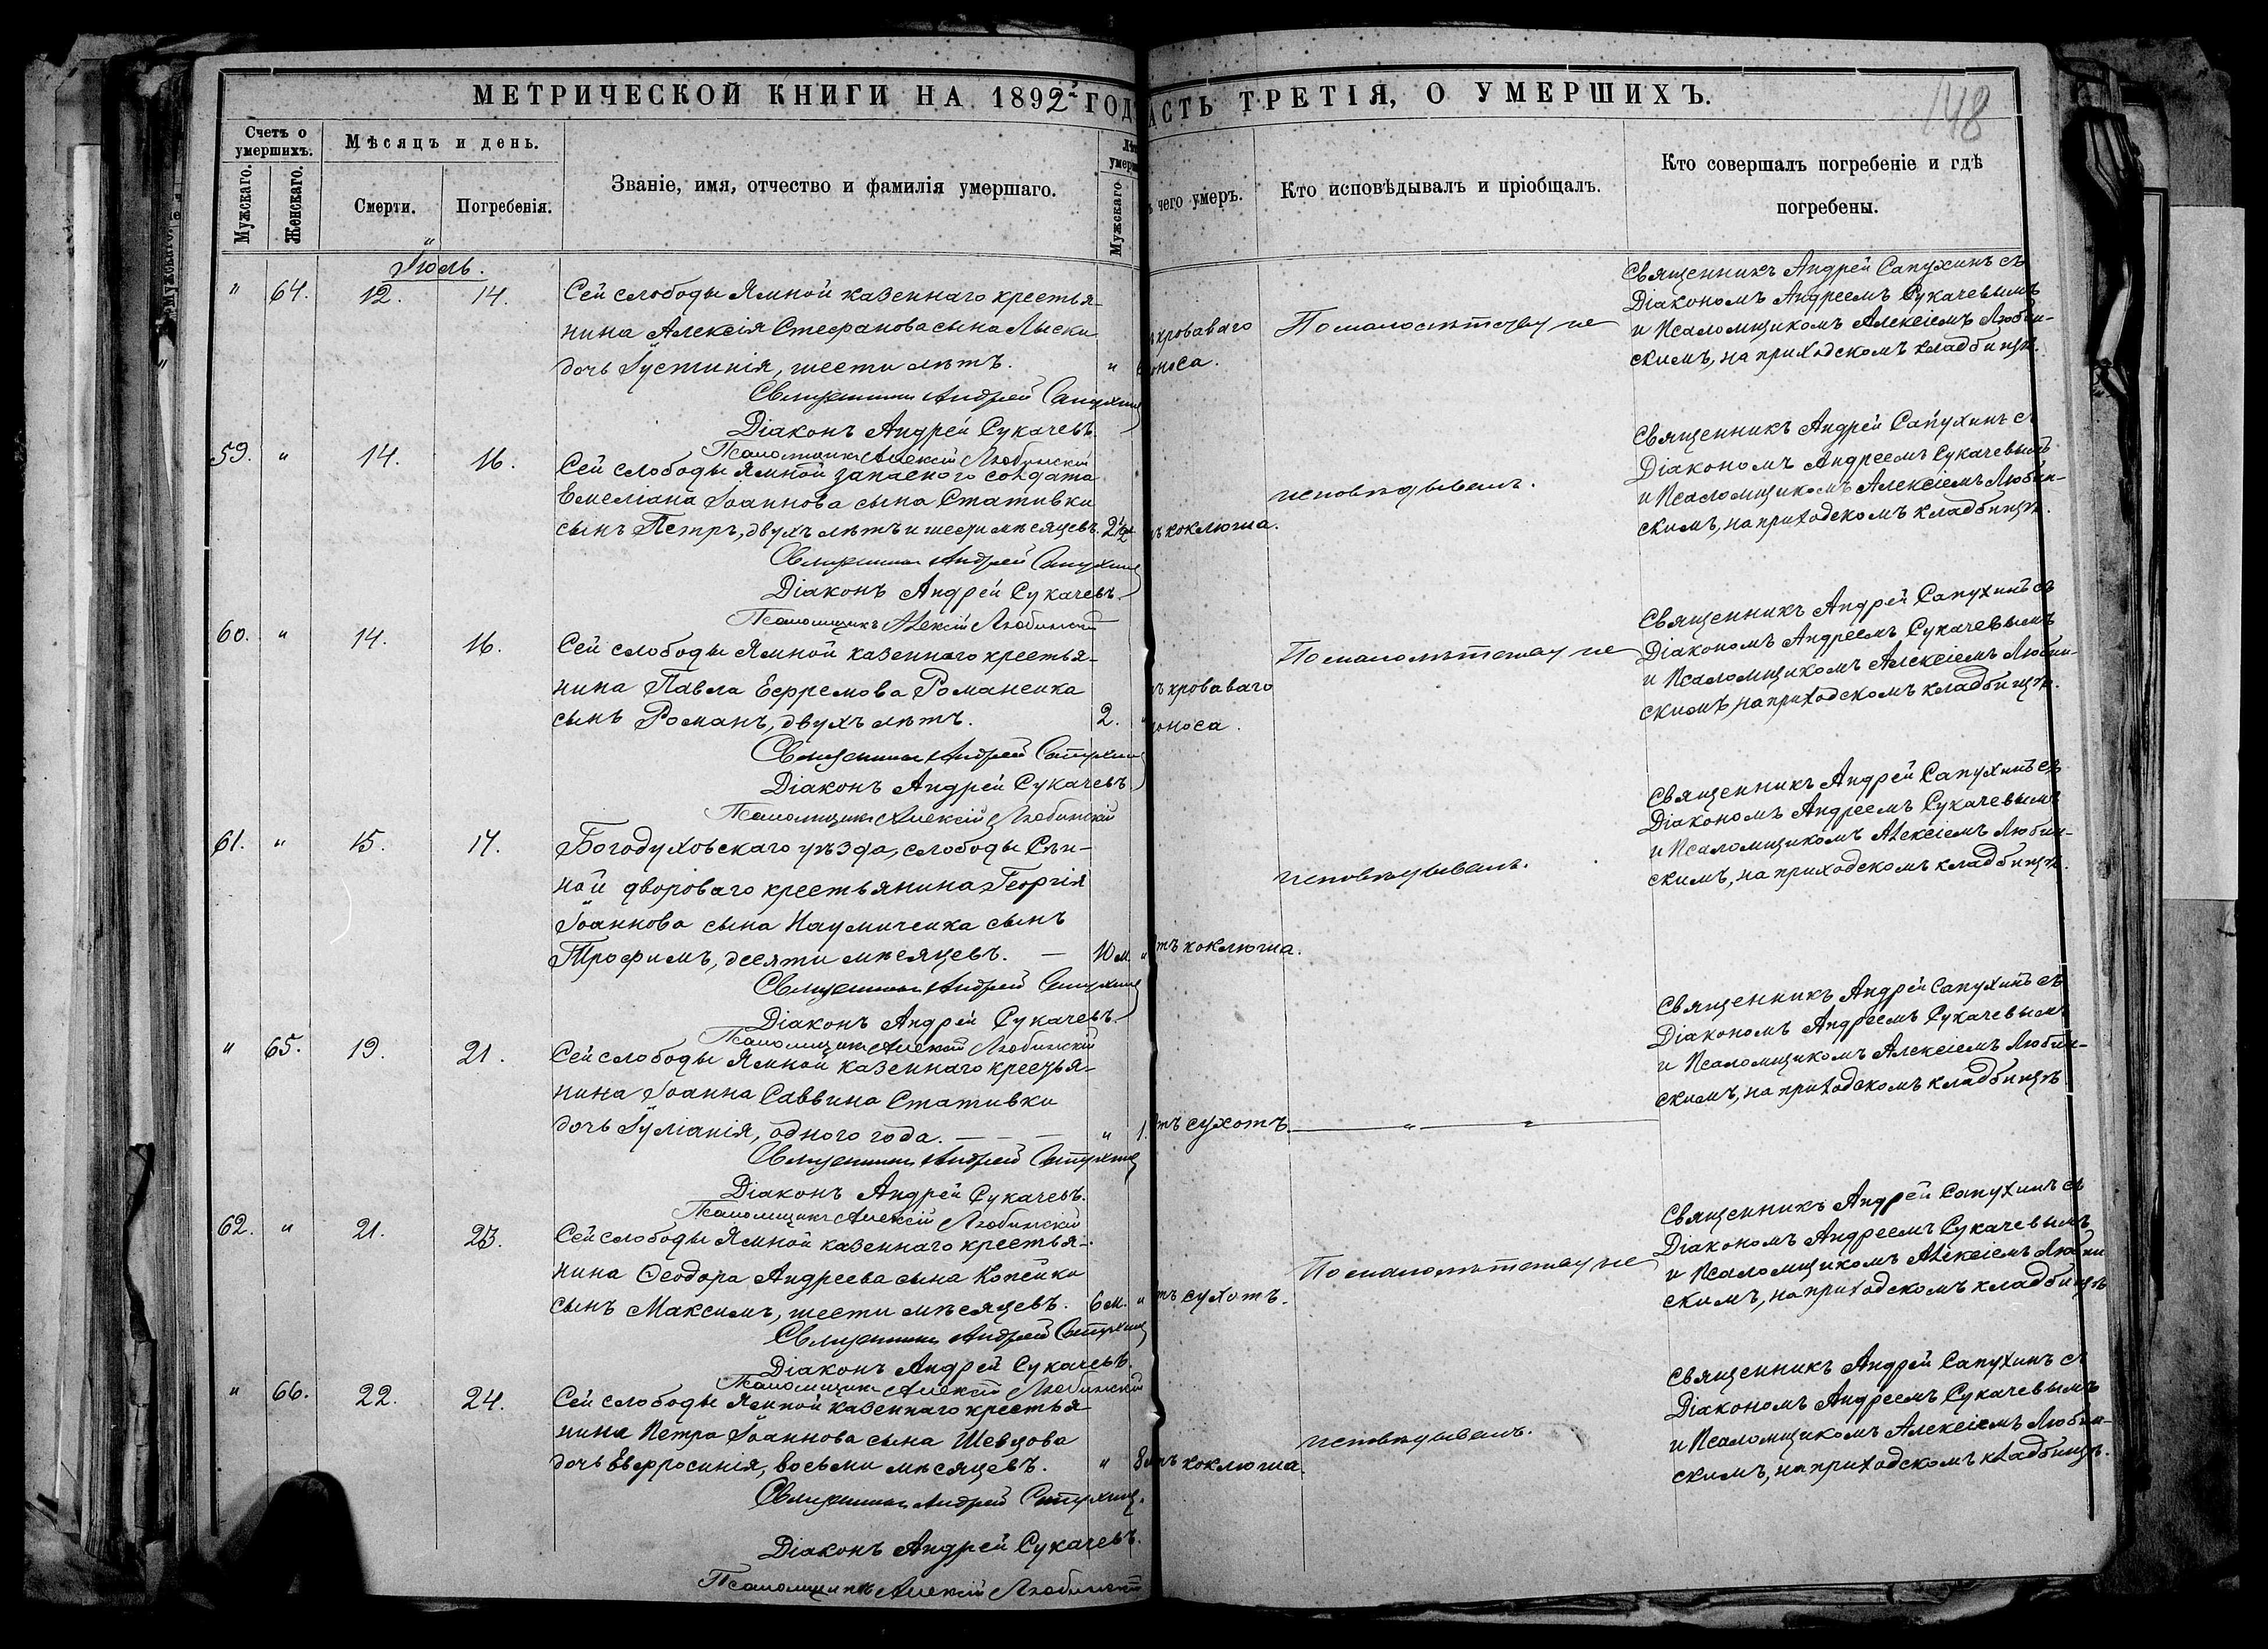 МЕТРИЧЕСКОЙ КНИГИ НА 1892й ГОД
АСТЬ ТРЕТІЯ, О УМЕРШИХЪ.
148
Счетъ о умершихъ.
Мужскаго.
Женскаго.
Мѣсяцъ и день.
Смерти.
Погребенія.
Званіе, имя, отчество и фамилія умершаго.
Мужскаго
чего умеръ.
Кто исповѣдывалъ и пріобщалъ.
Кто совершалъ погребеніе и гдѣ
погребены.
Іюль.
" 64. 12. 14. Сей слободы Ямной казеннаго крестья-
нина Алексія Стефанова сына Лыски
дочь Іустинія, шести лѣтъ. "
Священникъ Андрей Сапухинъ
Діаконъ Андрей Сукачевъ.
Псаломщикъ Алексій Любинскій
кроваваго
оноса.
По малолѣтству не
Священникъ Андрей Сапухинъ съ
Діакономъ Андреемъ Сукачевымъ
и Псаломщикомъ Алексіемъ Любин-
скимъ, на приходскомъ кладбищѣ.
59. " 14. 16. Сей слободы Ямной запаснаго солдата
Емеліана Іоаннова сына Стативки
сынъ Петръ, двухъ лѣтъ и шести мѣсяцевъ. 2½
Священникъ Андрей Сапухинъ
Діаконъ Андрей Сукачевъ.
Псаломщикъ Алексій Любинскій
коклюша.
исповѣдывали.
Священникъ Андрей Сапухинъ съ
Діакономъ Андреемъ Сукачевымъ
и Псаломщикомъ Алексіемъ Любин-
скимъ, на приходскомъ кладбищѣ.
60. " 14. 16. Сей слободы Ямной казеннаго крестья-
нина Павла Ефремова Романенка
сынъ Романъ, двухъ лѣтъ. 2.
Священникъ Андрей Сапухинъ
Діаконъ Андрей Сукачевъ
Псаломщикъ Алексій Любинскій
ъ кроваваго
оноса.
По малолѣтству не
Священникъ Андрей Сапухинъ съ
Діакономъ Андреемъ Сукачевымъ
и Псаломщикомъ Алексіемъ Любин-
скимъ, на приходскомъ кладбищѣ.
61. " 15. 17. Богодуховскаго уѣзда, слободы Сѣн-
ной двороваго крестьянина Георгія
Іоаннова сына Наумиченка сынъ
Трофимъ, десяти мѣсяцевъ. — 10 м. "
Священникъ Андрей Сапухинъ
Діаконъ Андрей Сукачевъ.
Псаломщикъ Алексій Любинскій
тъ коклюша.
исповѣдывали.
Священникъ Андрей Сапухинъ съ
Діакономъ Андреемъ Сукачевымъ
и Псаломщикомъ Алексіемъ Любин-
скимъ, на приходскомъ кладбищѣ.
" 65. 19. 21. Сей слободы Ямной казеннаго крестья-
нина Іоанна Саввина Стативки
дочь Іуліанія, одного года. — " 1.
Священникъ Андрей Сапухинъ
Діаконъ Андрей Сукачевъ.
Псаломщикъ Алексій Любинскій
тъ сухотъ. — " — "
Священникъ Андрей Сапухинъ съ
Діакономъ Андреемъ Сукачевымъ
и Псаломщикомъ Алексіемъ Любин-
скимъ, на приходскомъ кладбищѣ
62. " 21. 23. Сей слободы Ямной казеннаго крестья-
нина Ѳеодора Андреева сына Копейки
сынъ Максимъ, шести мѣсяцевъ. 6 м. "
Священникъ Андрей Сапухинъ
Діаконъ Андрей Сукачевъ.
Псаломщикъ Алексій Любинскій
тъ сухотъ.
По малолѣтству не
Священникъ Андрей Сапухинъ съ
Діакономъ Андреемъ Сукачевымъ
и Псаломщикомъ Алексіемъ Любин
скимъ, на приходскомъ кладбищѣ
" 66. 22. 24. Сей слободы Ямной казеннаго крестья
нина Петра Іоаннова сына Шевцова
дочь Евфросинія, восьми мѣсяцевъ. " 8
Священникъ Андрей Сапухинъ.
Діаконъ Андрей Сукачевъ.
Псаломщикъ Алексій Любинскій
тъ коклюша.
исповѣдывали.
Священникъ Андрей Сапухинъ съ
Діакономъ Андреемъ Сукачевымъ
и Псаломщикомъ Алексіемъ Любин-
скимъ, на приходскомъ кладбищѣ.